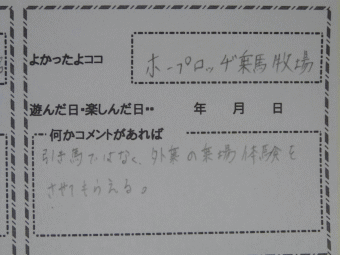 よかったよココ
ホープロッヂ乗馬牧場
遊んだ日・楽しんだ日・・ 年 月 日
何かコメントがあれば
引き馬ではなく、外乗の乗場体験を
させてもらえる。